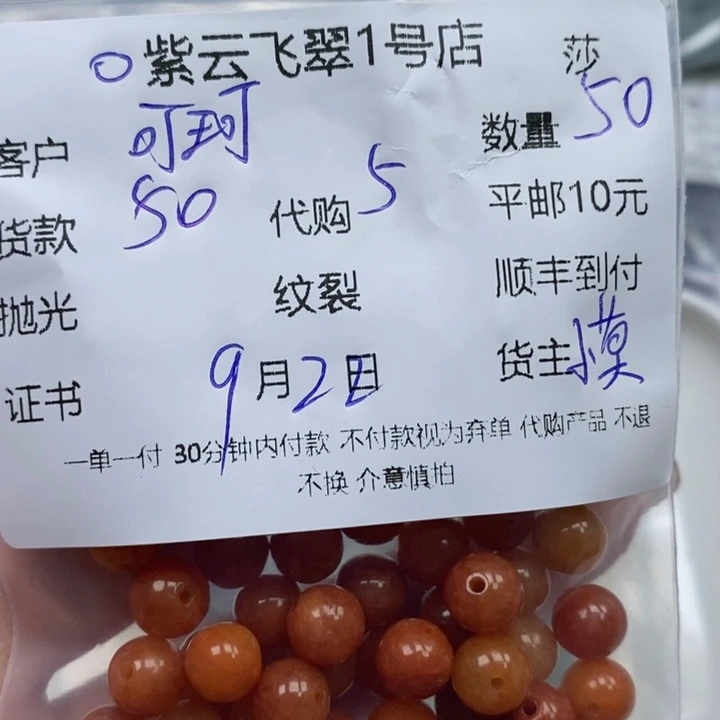 紫云飞翠1号店 莎
客户 叮珂 数量 50
货款 50 代购 5 平邮10元
抛光 纹裂 顺丰到付
证书 9月22日 货主
一单一付 30分钟内付款 不付款视为弃单 代购产品 不退
不换 介意慎拍